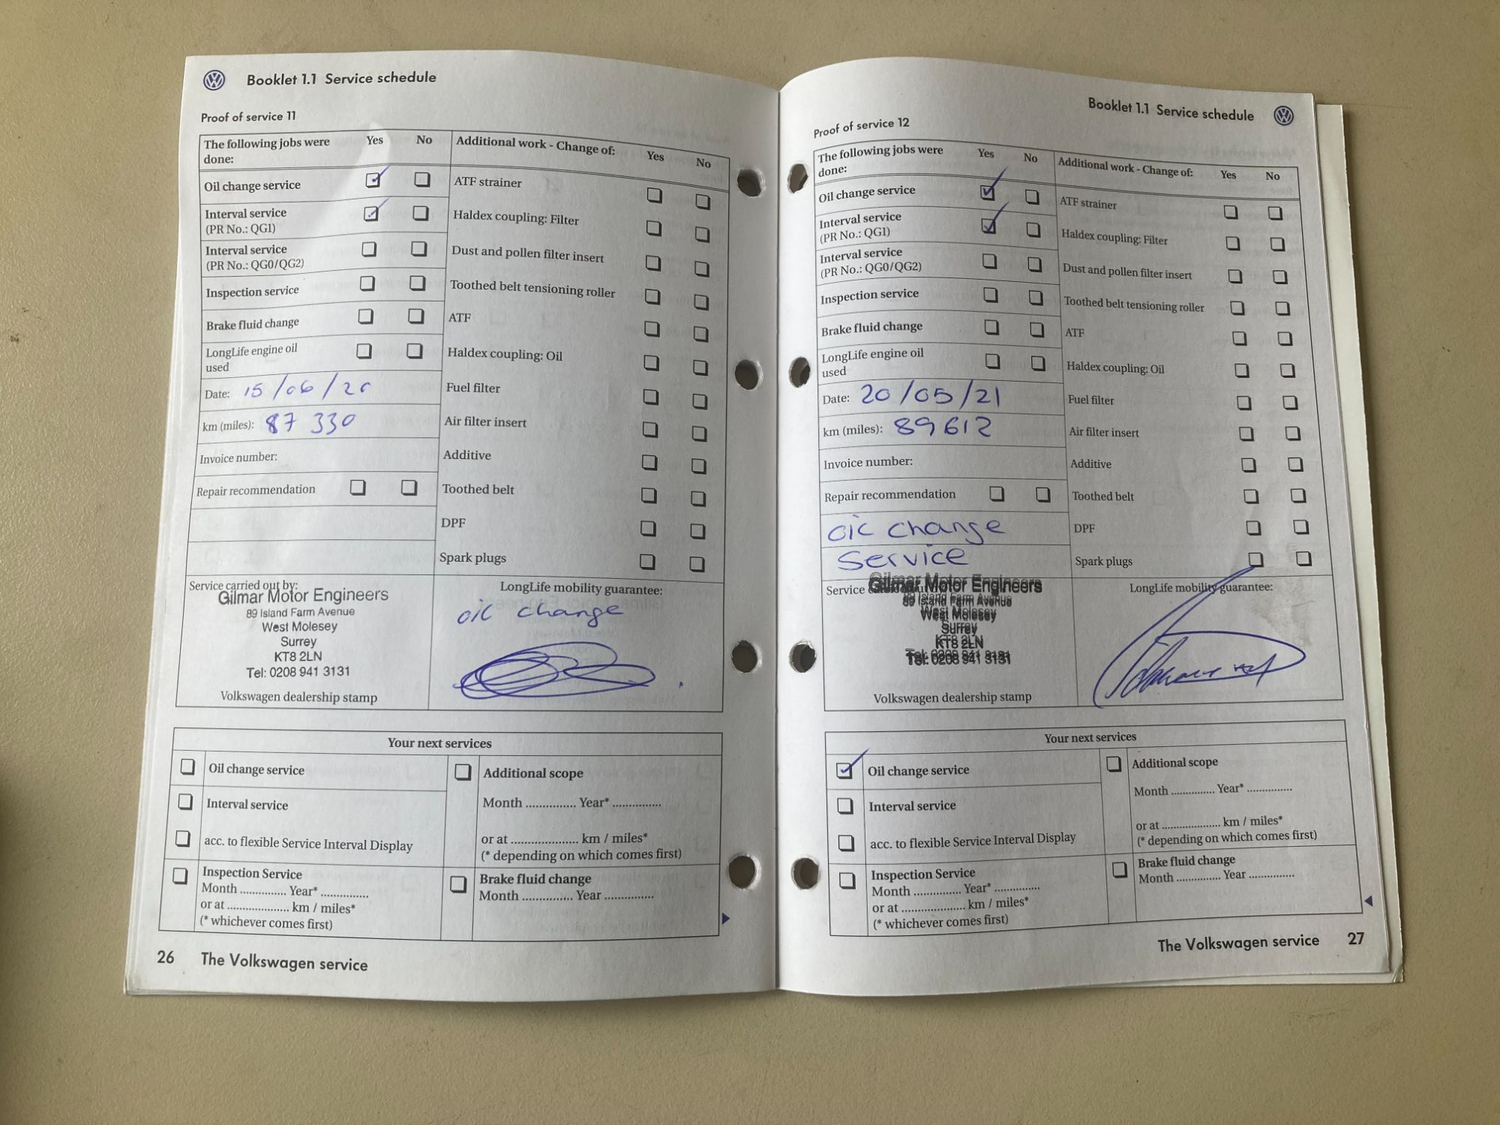 Booklet 1.1 Service schedule
Proof of service 11
The following jobs were done: Yes No
Oil change service
Interval service
(PR No.: QG1)
Interval service
(PR No.: QG0/QG2)
Inspection service
Brake fluid change
LongLife engine oil
used
Date: 15/06/20
km (miles): 87 330
Invoice number:
Repair recommendation
Additional work - Change of: Yes No
ATF strainer
Haldex coupling: Filter
Dust and pollen filter insert
Toothed belt tensioning roller
ATF
Haldex coupling: Oil
Fuel filter
Air filter insert
Additive
Toothed belt
DPF
Spark plugs
Service carried out by:
Gilmar Motor Engineers
89 Island Farm Avenue
West Molesey
Surrey
KT8 2LN
Tel: 0208 941 3131
Volkswagen dealership stamp
LongLife mobility guarantee:
oil change
Your next services
Oil change service
Interval service
acc. to flexible Service Interval Display
Inspection Service
Month .............. Year* ..............
or at ...................... km / miles*
(* whichever comes first)
Additional scope
Month .............. Year* ..............
or at ...................... km / miles*
(* depending on which comes first)
Brake fluid change
Month .............. Year ..............
26 The Volkswagen service
Booklet 1.1 Service schedule
Proof of service 12
The following jobs were done: Yes No
Oil change service
Interval service
(PR No.: QG1)
Interval service
(PR No.: QG0/QG2)
Inspection service
Brake fluid change
LongLife engine oil
used
Date: 20/05/21
km (miles): 89612
Invoice number:
Repair recommendation
oil change
Service
Additional work - Change of: Yes No
ATF strainer
Haldex coupling: Filter
Dust and pollen filter insert
Toothed belt tensioning roller
ATF
Haldex coupling: Oil
Fuel filter
Air filter insert
Additive
Toothed belt
DPF
Spark plugs
Service
Gilmar Motor Engineers
89 Island Farm Avenue
West Molesey
Surrey
KT8 2LN
Tel: 0208 941 3131
Volkswagen dealership stamp
LongLife mobility guarantee:
Your next services
Oil change service
Interval service
acc. to flexible Service Interval Display
Inspection Service
Month .............. Year* ..............
or at ...................... km / miles*
(* whichever comes first)
Additional scope
Month .............. Year* ..............
or at ...................... km / miles*
(* depending on which comes first)
Brake fluid change
Month .............. Year ..............
The Volkswagen service 27